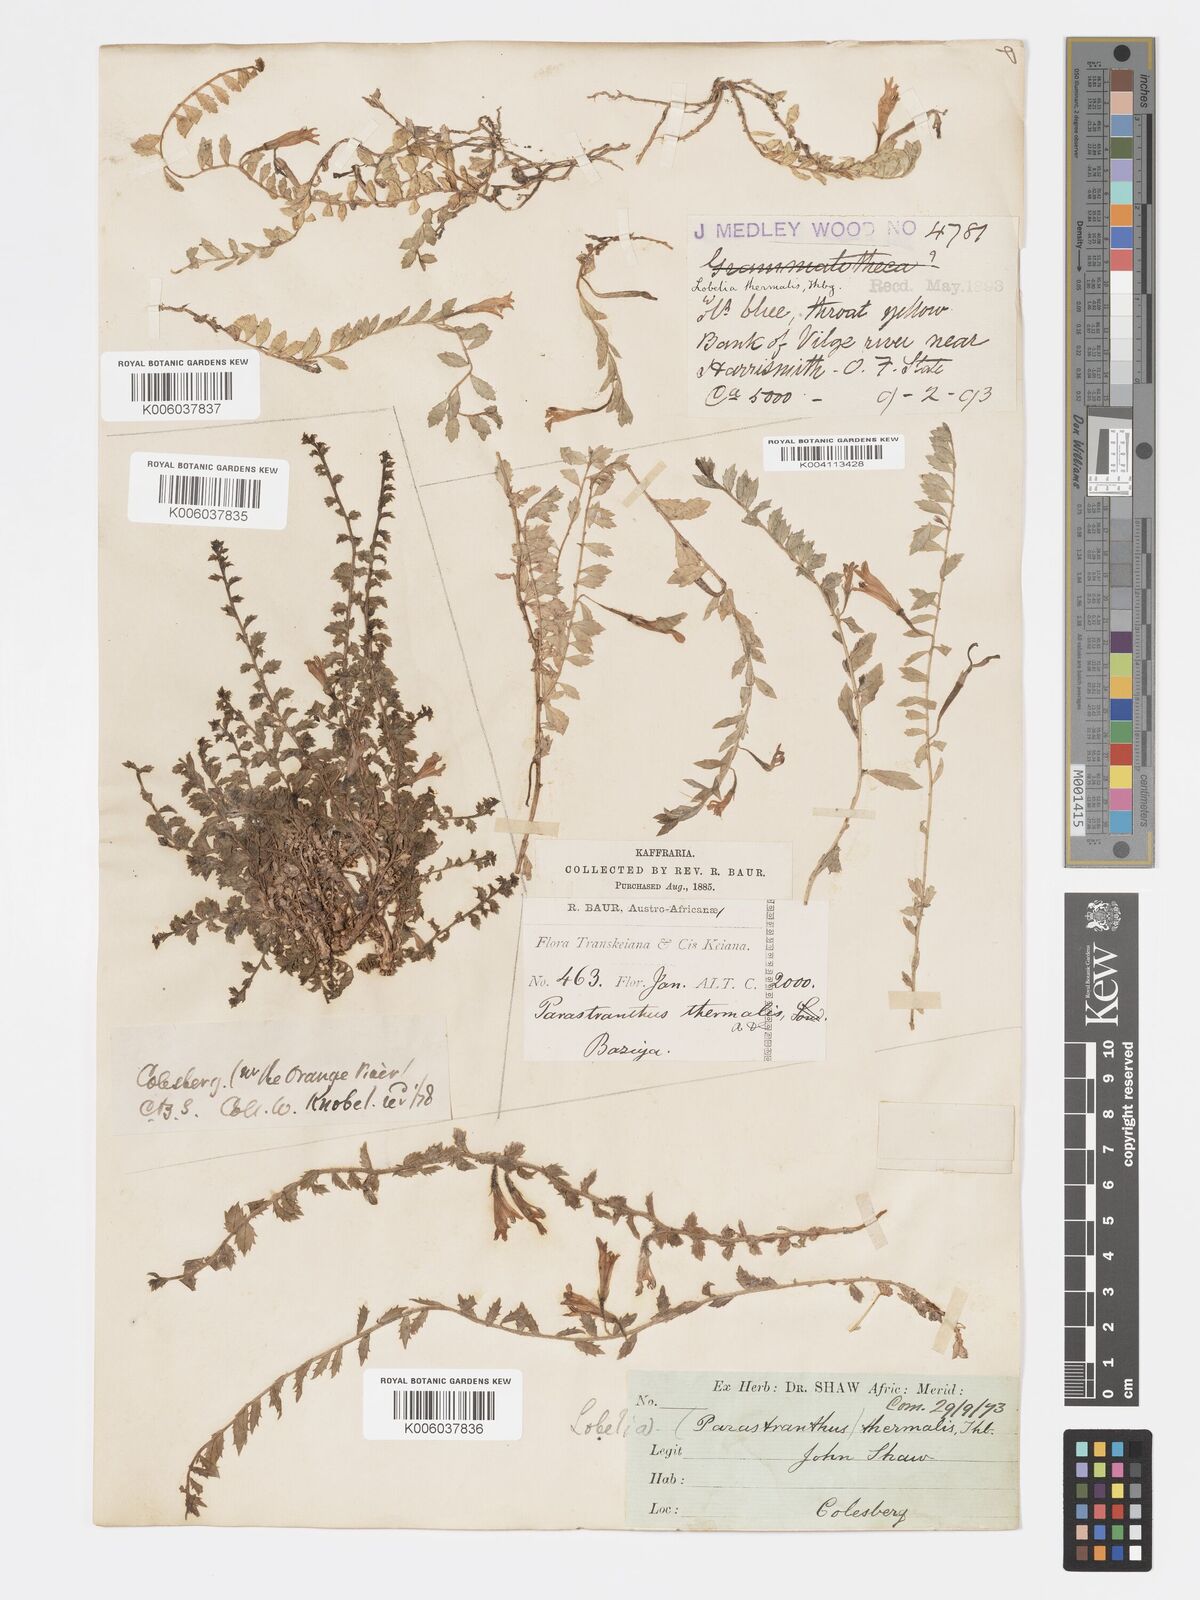 J MEDLEY WOOD NO 4781
Grammatotheca?
Lobelia thermalis, Thbg.
Recd. May. 1893
blue, throat yellow
Bank of Vilge river near
Harrismith - O. F. State
Ca 5000 - 9-2-93
ROYAL BOTANIC GARDENS KEW
K006037837
ROYAL BOTANIC GARDENS KEW
K004113428
ROYAL BOTANIC GARDENS KEW
K006037835
KAFFRARIA.
COLLECTED BY REV. R. BAUR.
PURCHASED Aug., 1885.
R. BAUR, Austro-Africanæ
Flora Transkeiana & Cis Keiana.
No. 463. Flor. Jan. ALT. C. 2000.
Parastranthus thermalis, Sond.
A DC
Baziya.
Colesberg. (nr the Orange River)
Coll. W. Knobel.
ROYAL BOTANIC GARDENS KEW
K006037836
Ex Herb: DR. SHAW Afric: Merid:
No. Com. 29/9/73
Lobelia (Parastranthus) thermalis, Thb.
Legit John Shaw
Hab:
Loc: Colesberg
inches
centimetres
Don Williams
M001415
Kew
Royal Botanic Gardens
0 1 2 3 4 5 6 7 8 9 10
cm
copyright reserved